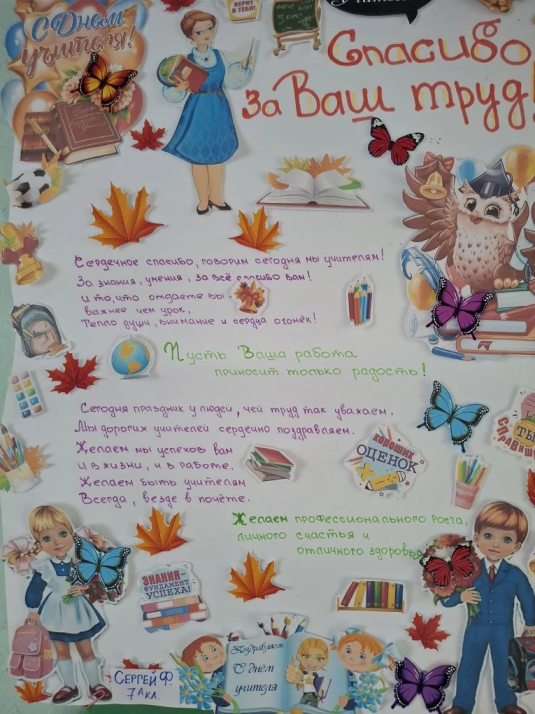 С Днём
учителя!
Спасибо
За Ваш труд!
Сердечное спасибо, говорим сегодня мы учителям!
За знания, умения, за всё спасибо вам!
И то, что отдаете вы
важнее чем урок,
Тепло души, внимание и сердца огонёк!
Пусть Ваша работа
приносит только радость!
Сегодня праздник у людей, чей труд так уважаем.
Мы дорогих учителей сердечно поздравляем.
Желаем мы успехов вам
и в жизни, и в работе.
Желаем быть учителям
Всегда, везде в почёте.
ХОРОШИХ
ОЦЕНОК
ТЫ
СПРАВИШЬ
Желаем профессионального роста,
личного счастья и
отличного здоровья
ЗНАНИЯ-
ФУНДАМЕНТ
УСПЕХА!
Поздравляем
С днём
учителя
СЕРГЕЙ Ф.
7 А КЛ.